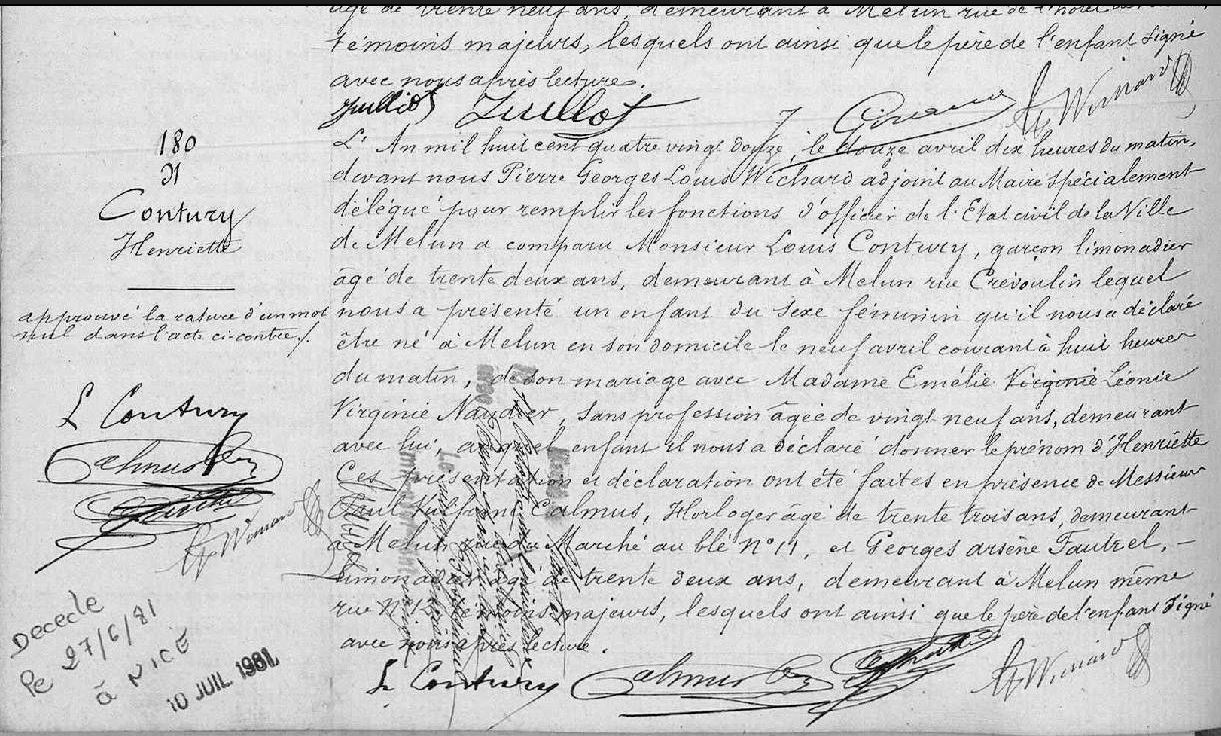 âgé de trente neuf ans, demeurant à Melun rue de l'hôtel de
témoins majeurs, lesquels ont ainsi que le père de l'enfant signé
avec nous après lecture.
Juillot
180
N
Contury
Henriette
approuvé la rature d'un mot
nul dans l'acte ci-contre /.
L'An mil huit cent quatre vingt douze, le douze avril dix heures du matin,
devant nous Pierre Georges Louis Wichard adjoint au Maire spécialement
délégué pour remplir les fonctions d'officier de l'Etat civil de la Ville
de Melun a comparu Monsieur Louis Contury, garçon limonadier
âgé de trente deux ans, demeurant à Melun rue Crévoulin lequel
nous a présenté un enfant du sexe féminin qu'il nous a déclaré
être né à Melun en son domicile le neuf avril courant à huit heures
du matin, de son mariage avec Madame Emélie Virginie Léonie
Virginie Naudier, sans profession âgée de vingt neuf ans, demeurant
avec lui, auquel enfant il nous a déclaré donner le prénom d'Henriette
Ces présentation et déclaration ont été faites en présence de Messieurs
Paul Calmus, Horloger âgé de trente trois ans, demeurant
à Melun rue du Marché au blé N° 11, et Georges arsène Fautrel, -
limonadier âgé de trente deux ans, demeurant à Melun même
rue N° témoins majeurs, lesquels ont ainsi que le père de l'enfant signé
avec nous après lecture.
L Contury
Calmus
L Contury
Calmus
Décédé
le 27/6/81
à NICE
10 JUIL 1981